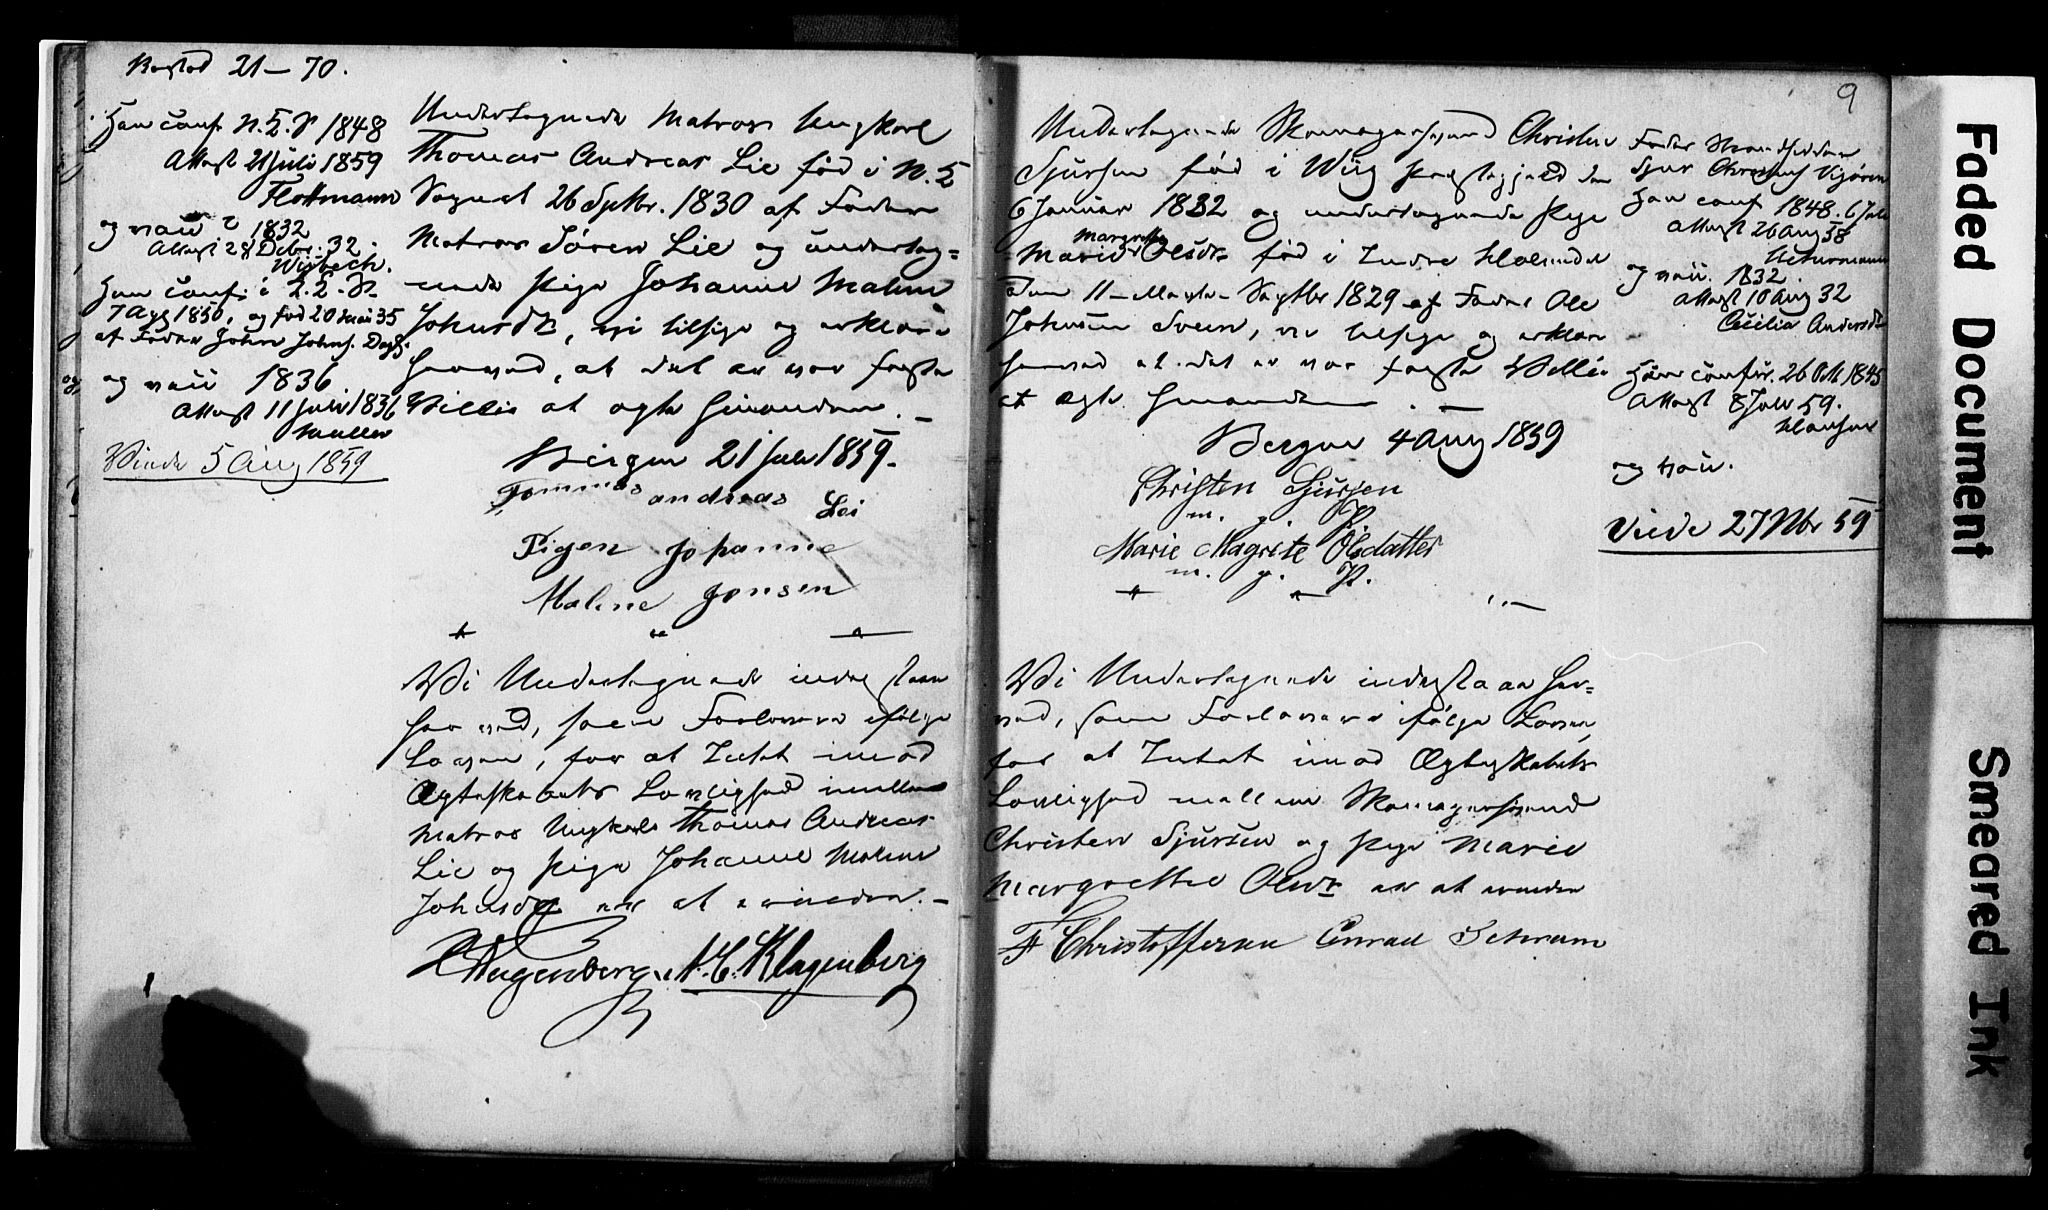 21–70.
Han conf. N. K. 1848
Attest 21 Juli 1859
og vacc. 1832
Attest 28 Debr. 32.
Wisbech.
Hun conf. i
og fød 20 Mai 35
af Fader John Johns.
og vacc. 1836
Attest 11 Juli 1836
Møller
Viede 5 Aug 1859
Undertegnede Matros Ungkarl
Thomas Andreas Lie fød i N. K
Sognet 26 Septbr. 1830 af Fader
Matros Sören Lie og underteg=
nede Pige Johanne Maline
Johnsdtr, vi tilsige og erklære
herved, at det er vor faste
Villie at ægte hinanden. –
Bergen 21 Juli 1859.
Tommas andreas Lei
Pigen Johanne
Maline Jonsen
Vi Undertegnede indestaae
herved, som Forlovere ifølge
Loven, for at Intet imod
Ægteskabets Lovlighed imellem
Matros Ungkarl Thomas Andreas
Lie og Pige Johanne Maline
Johnsdtr er at erindre. –
N. C. Klagenberg
9
Undertegnede Skomagersvend Christen
Sjursen fød i Wiig Præstegjeld den
6 Januar 1832 og undertegnede Pige
Margrethe
Marie Olsdtr fød i Indre Holmedal
Den 11 Septbr 1829 af Fader Ole
Johnsen Sveen, vi tilsige og erklære
herved at det er vor faste Villie
at ægte hinanden. –
Bergen 4 Aug 1859
Christen Sjursen
m. p. P.
Marie Magrete Olsdatter
m. p. P.
Vi Undertegnede indestaae her=
ved, som Forlovere ifølge Loven,
for at Intet imod Ægteskabets
Lovlighed mellem Skomagersvend
Christen Sjursen og Pige Marie
Margrethe Olsdtr er at erindre
F Christoffersen Conrad Schram
Fader
Sjur
Han conf. 1848. 6 Juli
Attest 26 Aug 58
og vacc. 1832.
Attest 10 Aug 32
Cecilia Andersdtr
Hun confir. 26 Okt 1845
Attest 8 Juli 59.
Klausen
og vacc.
Viede 27 Nbr 59
Faded Document
Smeared Ink